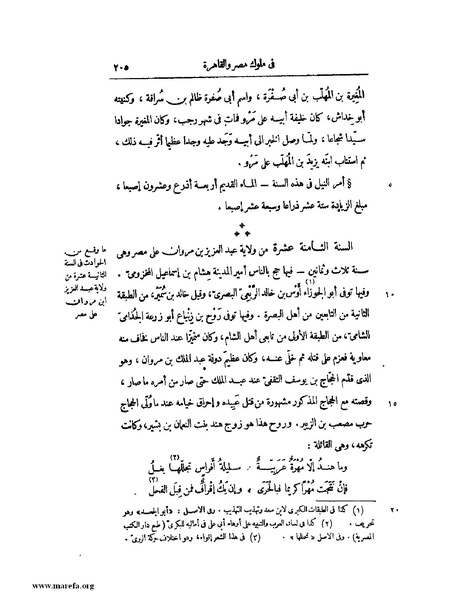 فى ملوك مصر والقاهرة ٢٠٥
المُغِيرة بن المُهَلَّب بن أبى صُفْرَة ، واسم أبى صُفرة ظالم بن سُراقة ، وكنيته
أبو خِداش، كان خليفة أبيه على مَرْو فمات فى شهر رجب، وكان المغيرة جوادا
سيّدا شجاعا ، ولمّا وصل الخبر الى أبيه وَجَد عليه وجدا عظيما أثّر فيه ذلك ،
ثم استناب ابنَه يزيدَ بن المُهَلَّب على مَرْو .
٥ § أمر النيل فى هذه السنة — الماء القديم أربعة أذرع وعشرون إصبعا ،
مبلغ الزيادة ستة عشر ذراعا وسبعة عشر إصبعا .
***
ما وقع من
الحوادث فى السنة
الثامنة عشرة من
ولاية عبد العزيز
ابن مروان
على مصر
السنة الثامنة عشرة من ولاية عبد العزيز بن مروان على مصر وهى
سنة ثلاث وثمانين — فيها حج بالناس أمير المدينة هِشام بن إسماعيل المخزومىّ .
١٠ وفيها توفى أبو الجَوْزاء(١) أَوْس بن خالد الرَّبَعِىّ البصرىّ، وقيل خالد بن سُمَيْر، من الطبقة
الثانية من التابعين من أهل البصرة . وفيها توفى رَوْح بن زِنْباع أبو زرعة الجُذَامىّ
الشامىّ، من الطبقة الأولى من تابعى أهل الشام، وكان متميّزا عند الناس يخافه منه
معاوية فعزم على قتله ثم خلّى عنه، وكان عظيم دولة عبد الملك بن مروان ، وهو
الذى قدّم الحجّاج بن يوسف الثقفىّ عند عبد الملك حتّى صار من أمره ما صار ،
١٥ وقصته مع الحجاج المذكور مشهورة من قتل عَبِيده وإحراق خيامه عند ما وُلِّى الحجاج
حرب مصعب بن الزبير . وروح هذا هو زوج هند بنت النعمان بن بشير، وكانت
تكرهه، وهى القائلة :
وما هنـدُ إلّا مُهْرَةٌ عَرَبِيّـةٌ * سَلِيلةُ أفراسٍ تجلّلها(٢) بغلُ
فإنْ نُتِجَتْ مُهْرًا كريما فبالحَرَى * وإن يكُ إقرافٌ فمن قِبَل الفَحلِ(٣)
٢٠ (١) كذا فى الطبقات الكبرى لابن سعد وتهذيب التهذيب . وفى الأصل : «أبو الجعد» وهو
تحريف . (٢) كذا فى لسان العرب والتنبيه على أوهام أبى على فى أماليه للبكرىّ (طبع دار الكتب
المصرية) . وفى الأصل «تحللها» . (٣) فى هذا الشعر إقواء، وهو اختلاف حركة الروىّ .
www.marefa.org